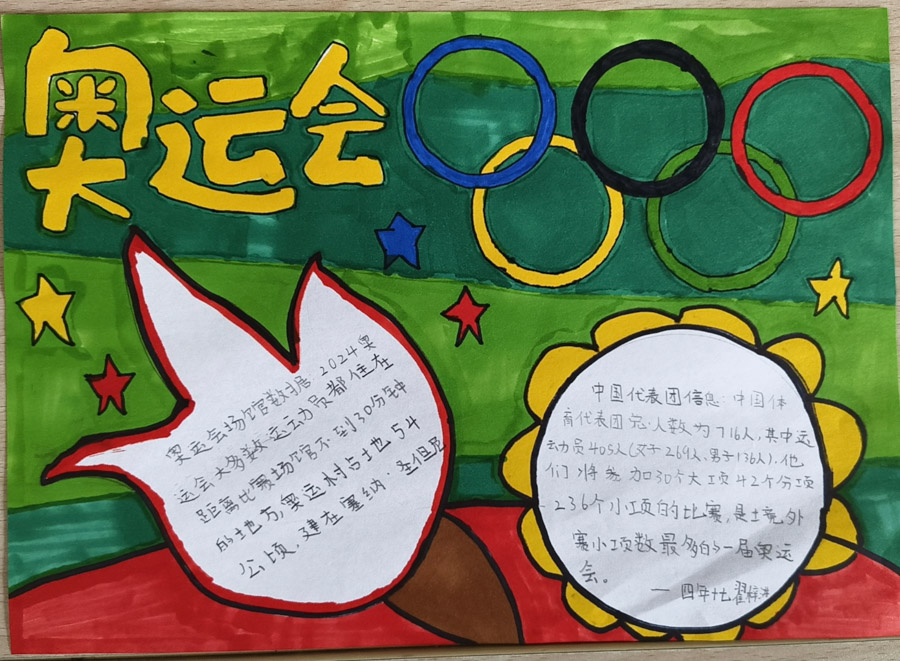 奥运会
奥运会场馆数据 2024奥
运会大多数运动员都住在
距离比赛场馆不到30分钟
的地方,奥运村占地54
公顷,建在塞纳·圣但尼
中国代表团信息:中国体
育代表团总人数为716人,其中运
动员405人(女子269人、男子136人),他
们将参加30个大项42个分项
236个小项的比赛,是境外
赛小项数最多的一届奥运
会。
一 四年十七